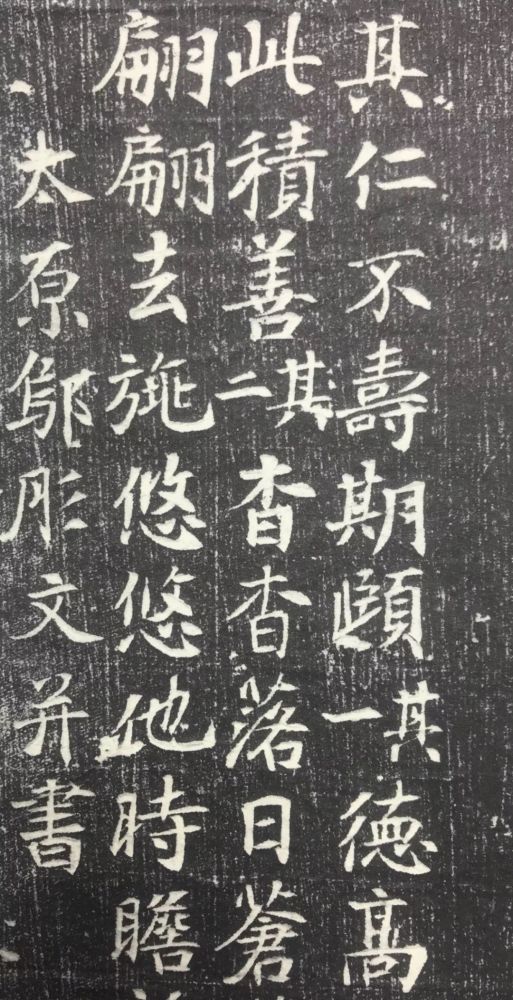 其仁不壽期頤其一德高
此積善其二杳杳落日蒼
翩翩去旐悠悠他時瞻
太原鄔彤文并書